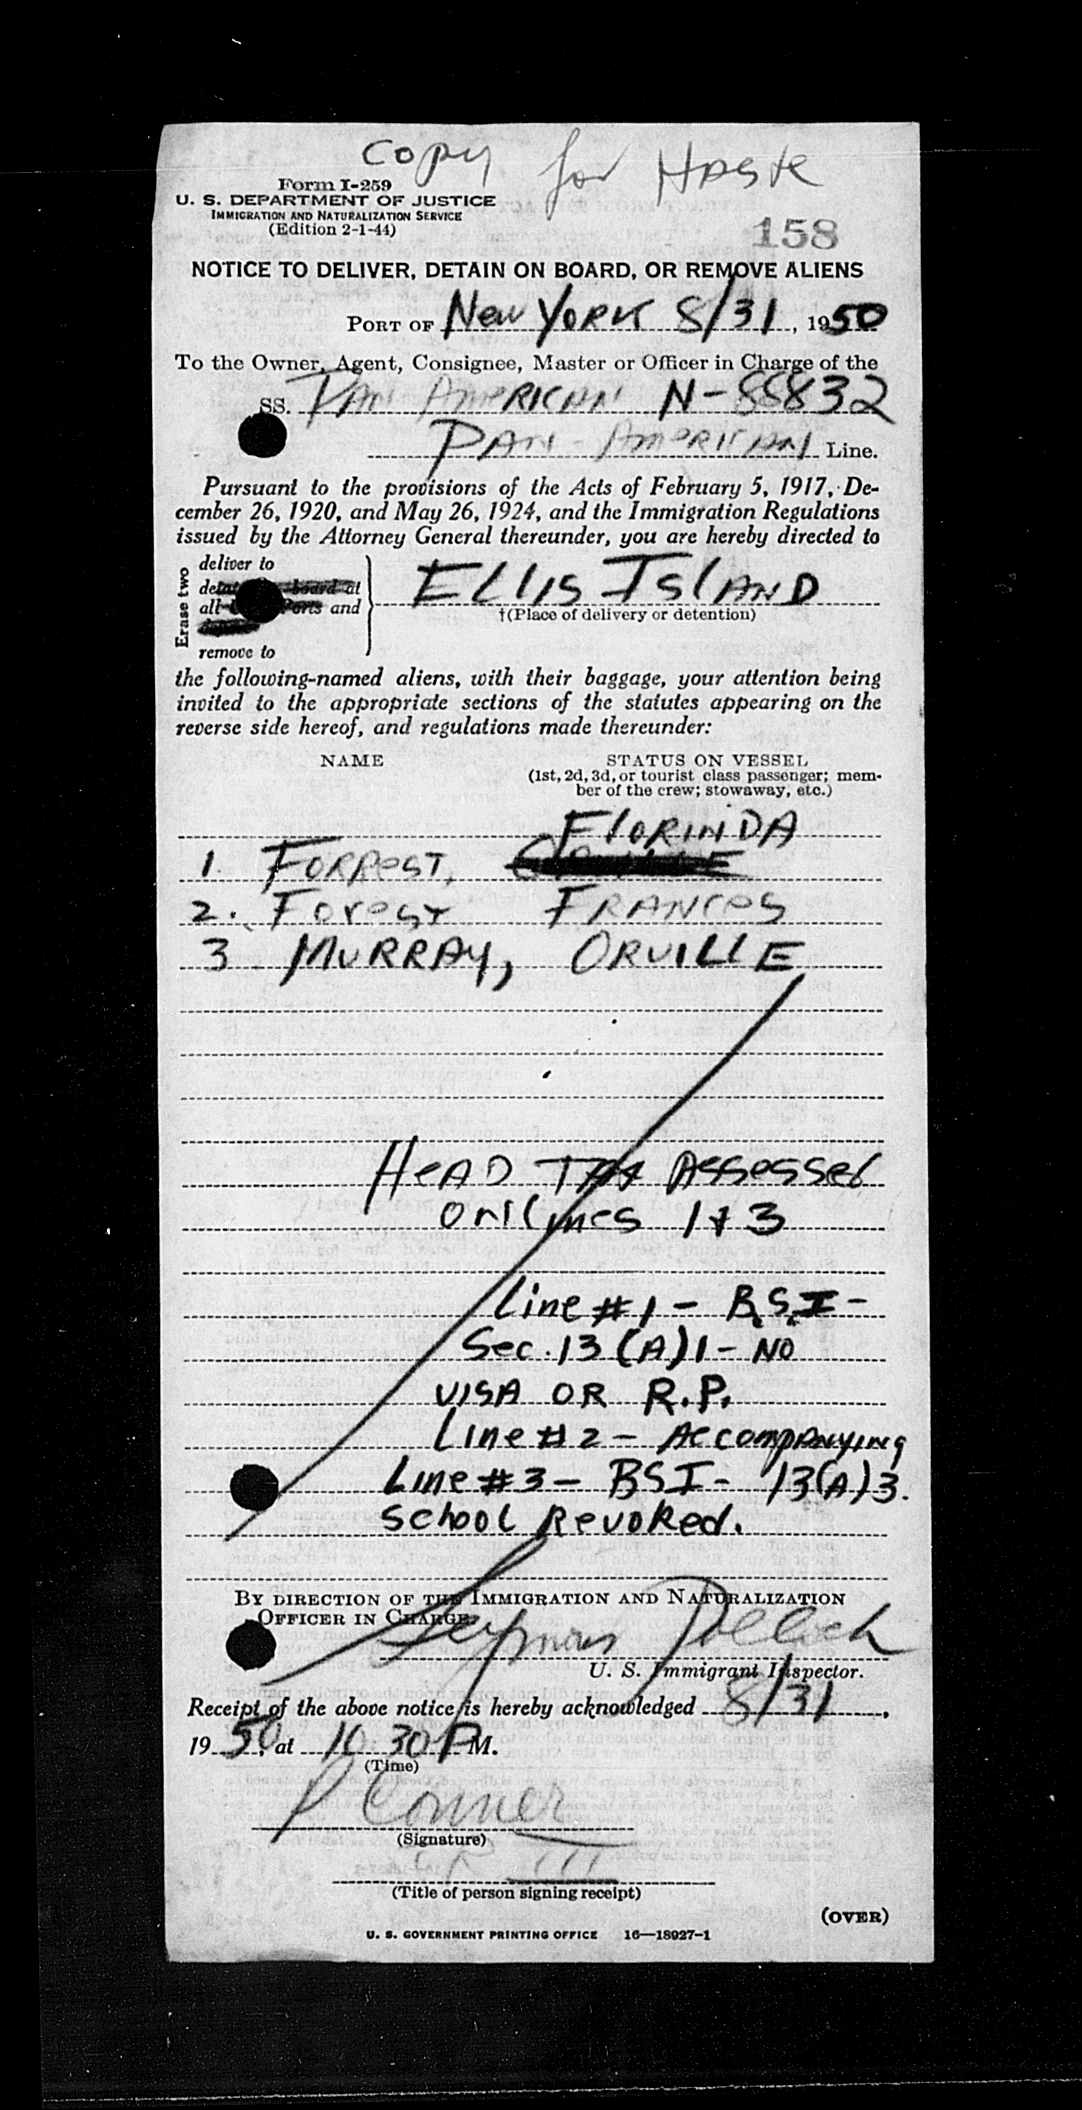 Copy for Haste
Form I-259
U. S. DEPARTMENT OF JUSTICE
IMMIGRATION AND NATURALIZATION SERVICE
(Edition 2-1-44)
158
NOTICE TO DELIVER, DETAIN ON BOARD, OR REMOVE ALIENS
PORT OF New York 8/31, 1950
To the Owner, Agent, Consignee, Master or Officer in Charge of the
SS. Pan American N-88832
Pan-American Line.
Pursuant to the provisions of the Acts of February 5, 1917, De-
cember 26, 1920, and May 26, 1924, and the Immigration Regulations
issued by the Attorney General thereunder, you are hereby directed to
Erase two
deliver to
board at
all and
remove to
ELLIS ISLAND
†(Place of delivery or detention)
the following-named aliens, with their baggage, your attention being
invited to the appropriate sections of the statutes appearing on the
reverse side hereof, and regulations made thereunder:
NAME STATUS ON VESSEL
(1st, 2d, 3d, or tourist class passenger; mem-
ber of the crew; stowaway, etc.)
FLORINDA
1. FORREST,
2. Forest FRANCES
3 MURRAY, ORVILLE
HEAD TAX Assessed
on lines 1 & 3
Line #1 - B.S.I -
Sec. 13 (A) 1 - NO
VISA OR R.P.
Line #2 - Accompanying
Line #3 - BSI - 13(A)3.
School Revoked.
BY DIRECTION OF THE IMMIGRATION AND NATURALIZATION
OFFICER IN CHARGE
Seymour Pollack
U. S. Immigrant Inspector.
Receipt of the above notice is hereby acknowledged 8/31,
1950, at 10 30 P M.
(Time)
P Conner
(Signature)
(Title of person signing receipt)
(OVER)
U. S. GOVERNMENT PRINTING OFFICE 16—18927-1